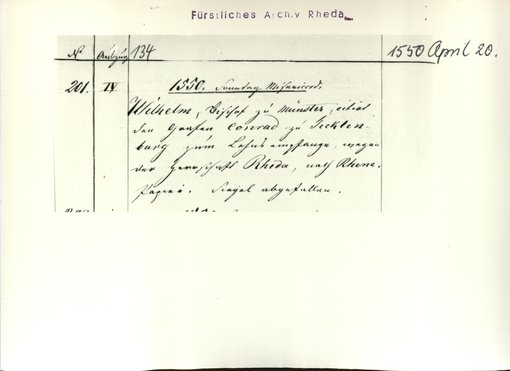 Fürstliches Archiv Rheda
No Auszug 134 1550 April 20.
201. IV 1550. Sonntag Misericord.
Wilhelm, Bischof zu Münster, citirt
den Grafen Conrad zu Tecklen-
burg zum Lehnsempfange, wegen
der Herrschaft Rheda, nach Rhene.
Papier. Siegel abgefallen.